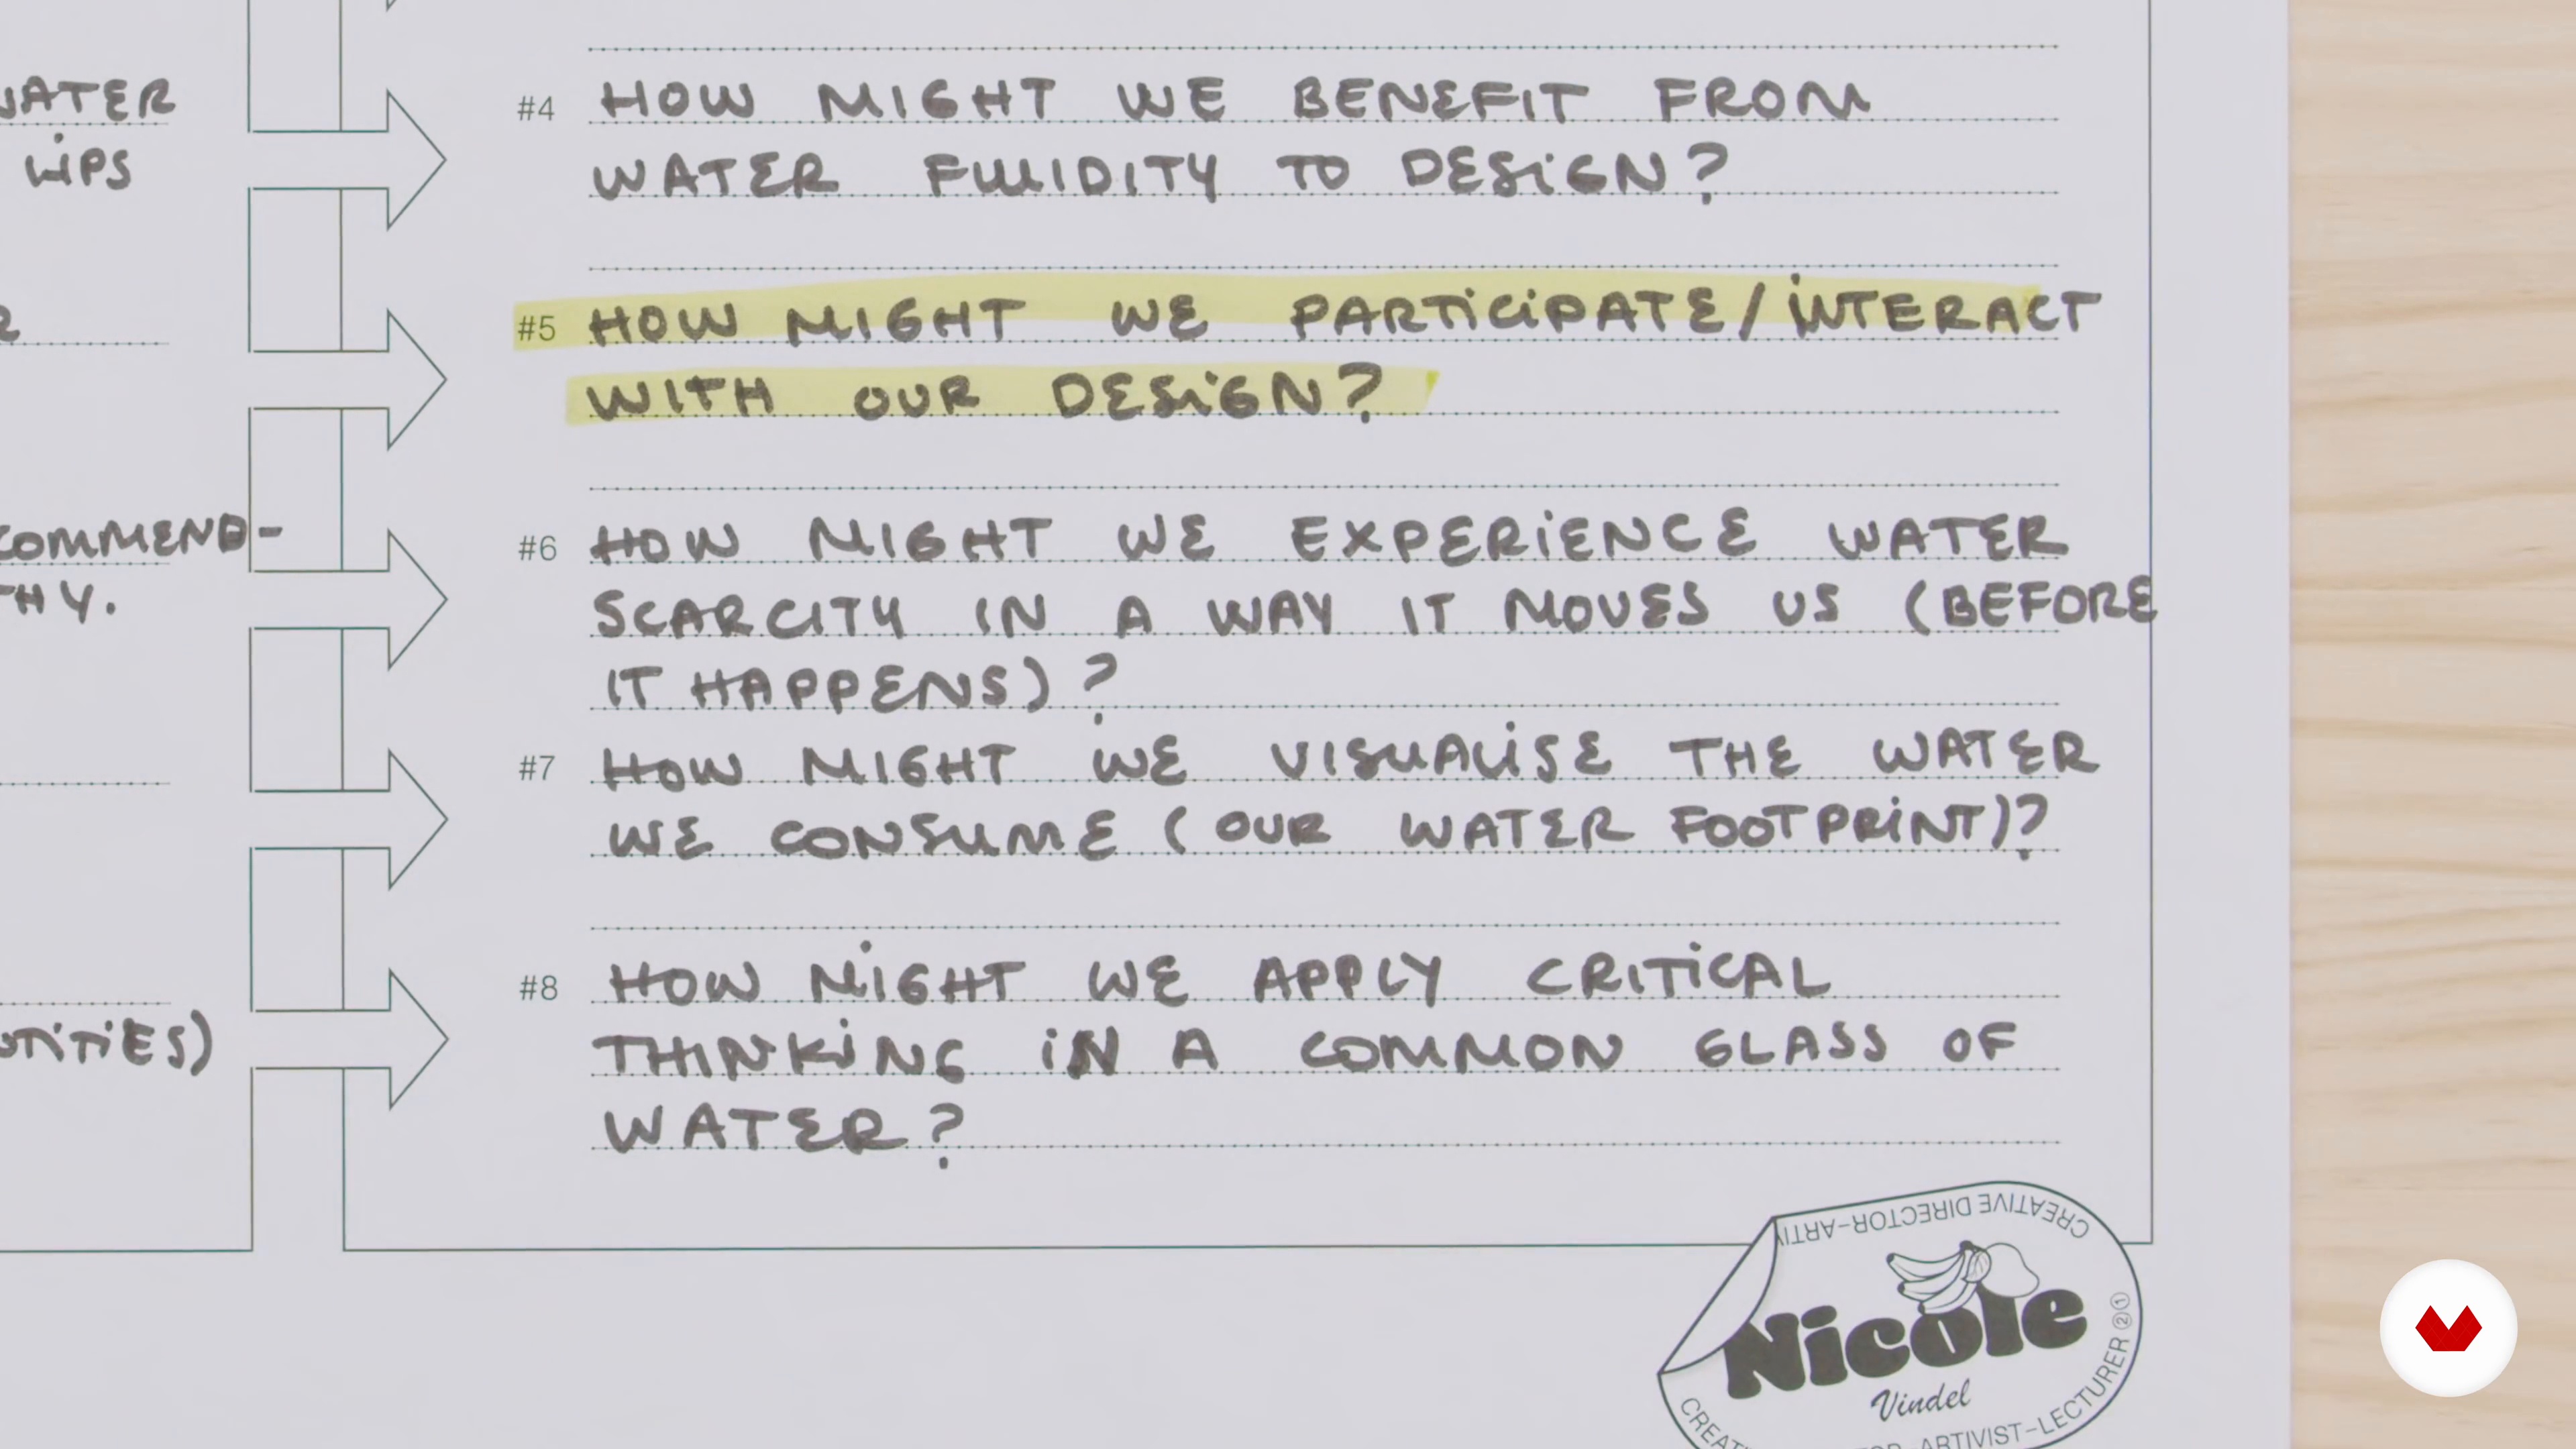 WATER
LIPS
COMMEND-
THY.
#4 HOW MIGHT WE BENEFIT FROM
WATER FLUIDITY TO DESIGN?
#5 HOW MIGHT WE PARTICIPATE/INTERACT
WITH OUR DESIGN?
#6 HOW MIGHT WE EXPERIENCE WATER
SCARCITY IN A WAY IT MOVES US (BEFORE
IT HAPPENS)?
#7 HOW MIGHT WE VISUALISE THE WATER
WE CONSUME (OUR WATER FOOTPRINT)?
#8 HOW MIGHT WE APPLY CRITICAL
THINKING IN A COMMON GLASS OF
WATER?
CREATIVE DIRECTOR-ARTI
Nicole
Vindel
ARTIVIST-LECTURER